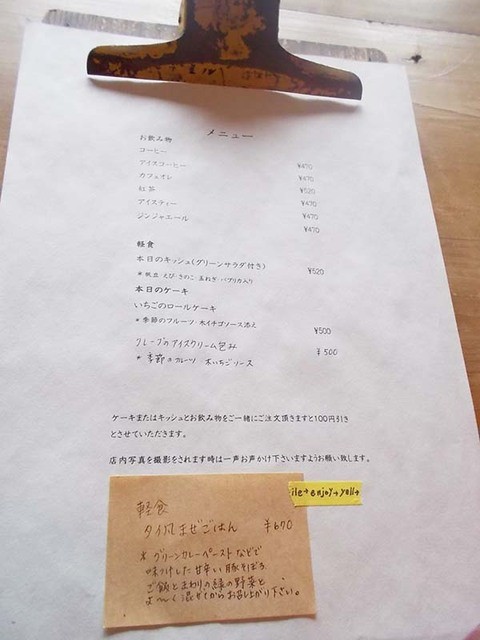 メニュー
お飲み物
コーヒー ¥470
アイスコーヒー ¥470
カフェオレ ¥520
紅茶 ¥470
アイスティー ¥470
ジンジャエール ¥470
軽食
本日のキッシュ(グリーンサラダ付き) ¥520
*帆立・えび・きのこ・玉ねぎ・パプリカ入り
本日のケーキ
いちごのロールケーキ ¥500
*季節のフルーツ・木イチゴソース添え
クレープのアイスクリーム包み ¥500
*季節のフルーツ 木いちごソース
ケーキまたはキッシュとお飲み物をご一緒にご注文頂きますと100円引き
とさせていただきます。
店内写真を撮影をされます時は一声お声かけ下さいますようお願い致します。
軽食
タイ風まぜごはん ¥670
*グリーンカレーペーストなどで
味つけした甘辛い豚そぼろ
ご飯とまわりの緑の野菜と
よ〜く混ぜてからお召し上がり下さい。